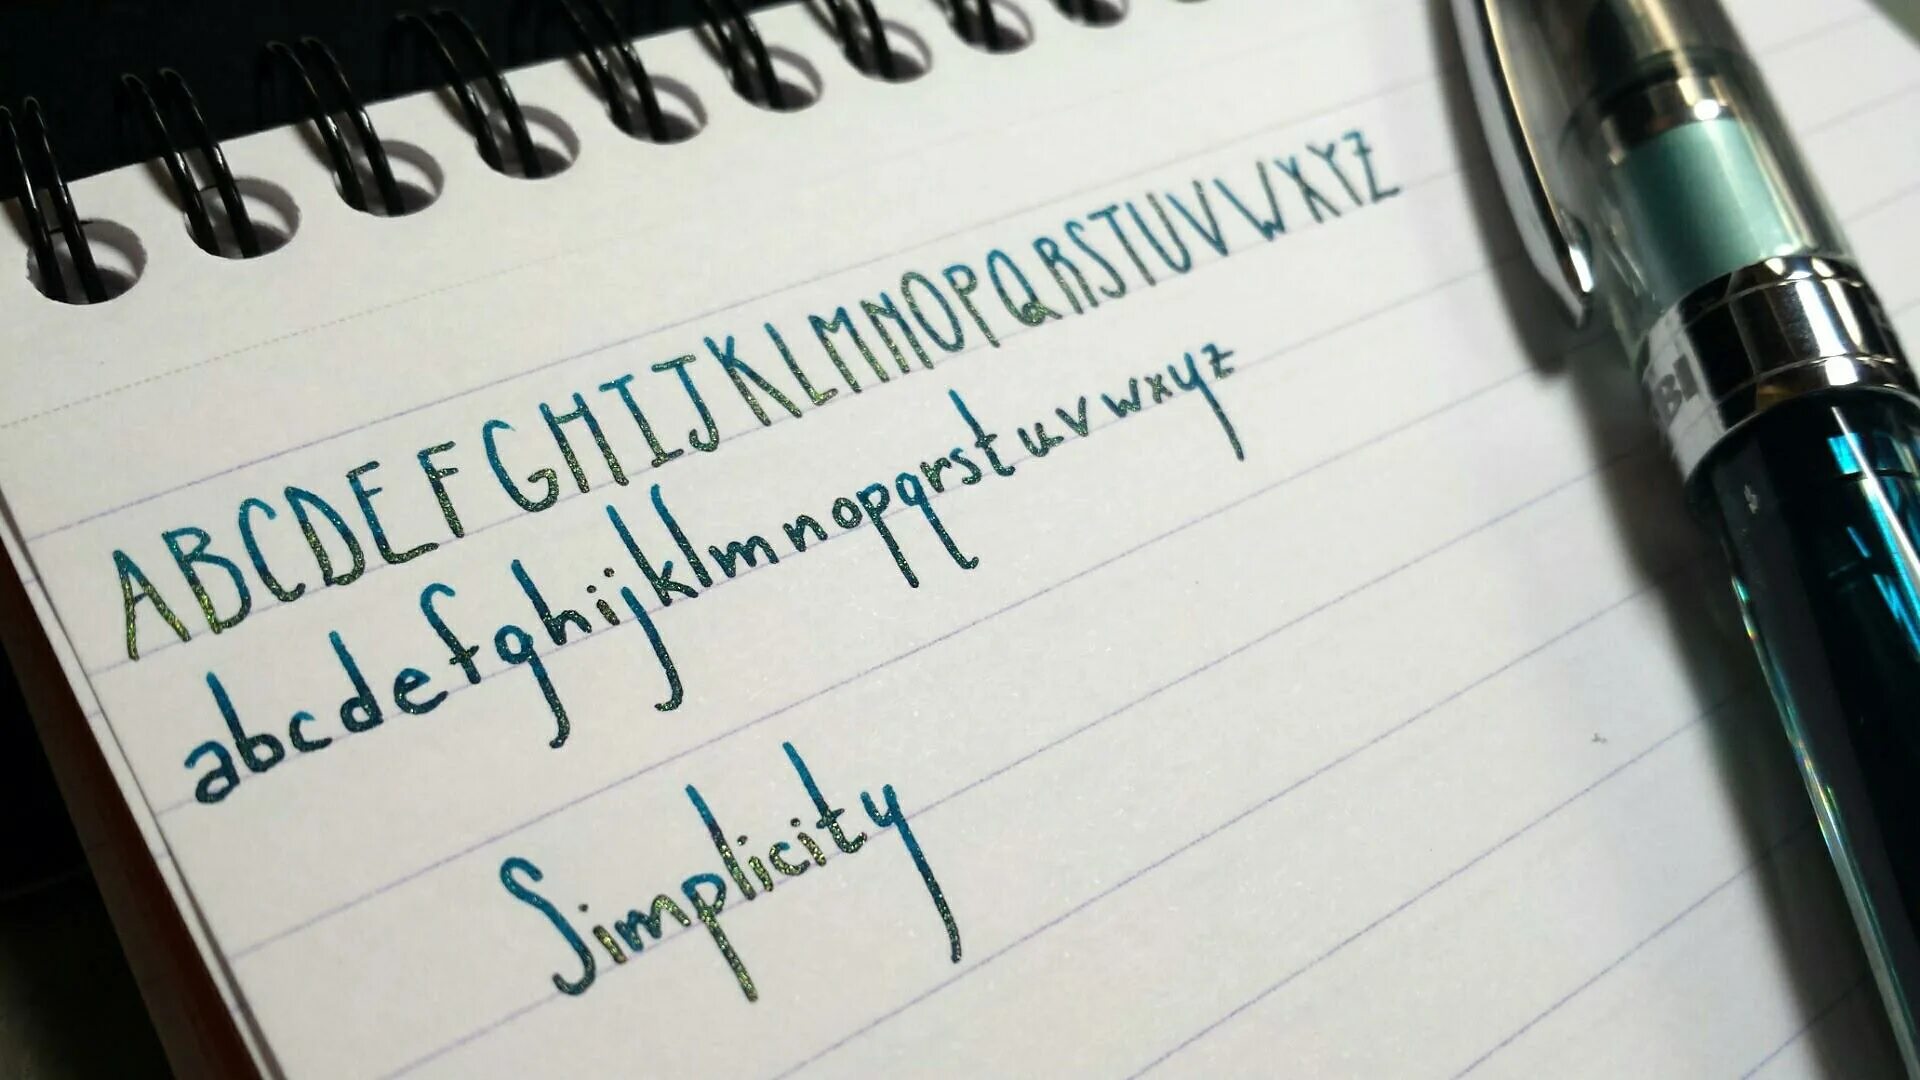 ABCDEFGHIJKLMNOPQRSTUVWXYZ
abcdefghijklmnopqrstuvwxyz
Simplicity